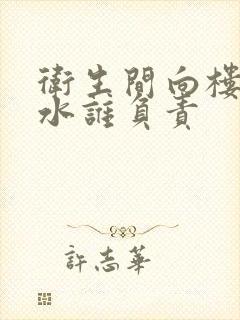 衛生間向樓
水誰負責
許志華